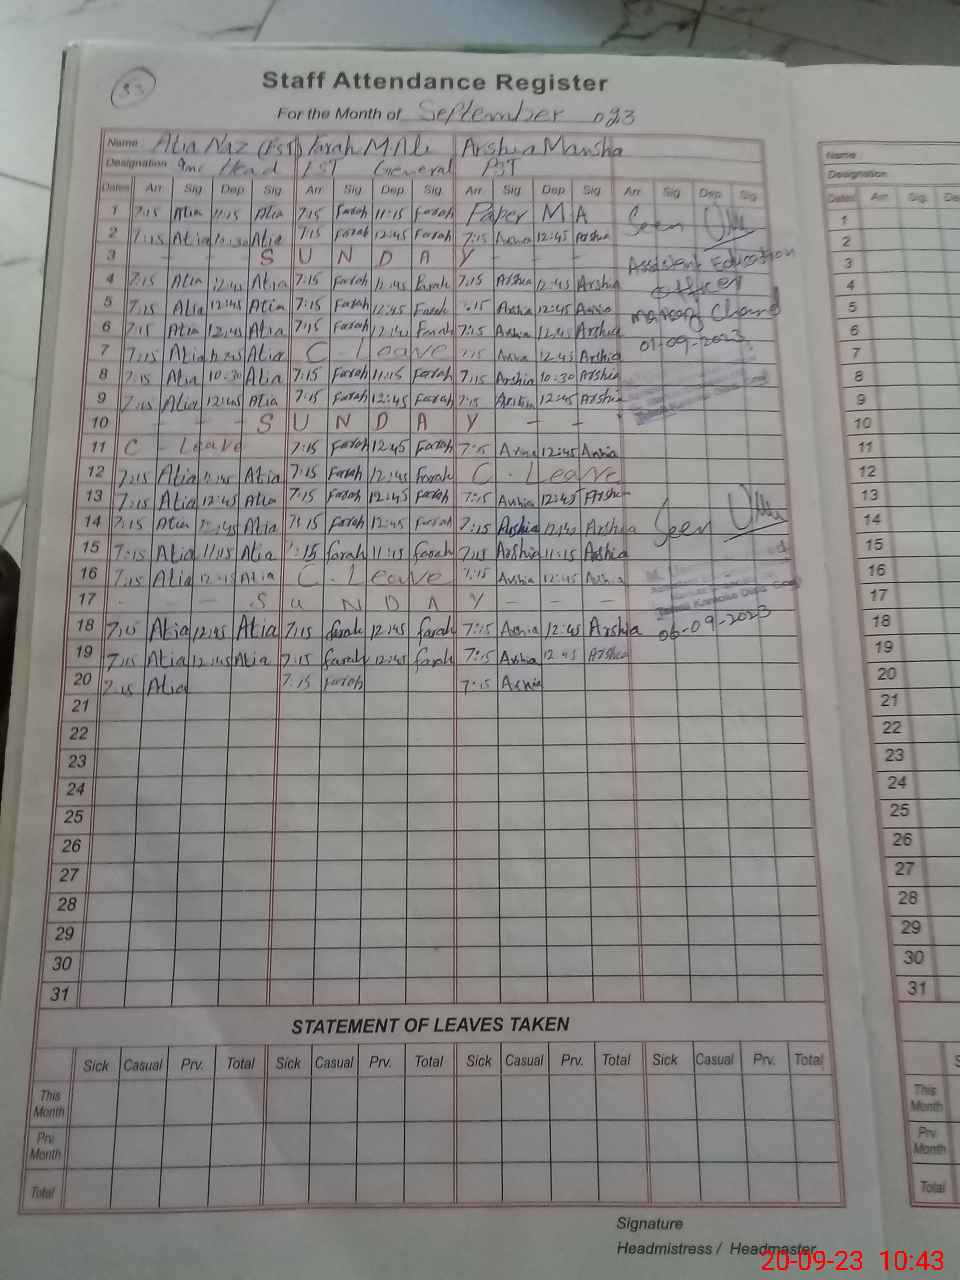 33
Staff Attendance Register
For the Month of September 023
Name Atia Naz (EST) Farah M.Ali Arshia Mansha
Designation Head PST General PST
Dates Arr Sig Dep Sig Arr Sig Dep Sig Arr Sig Dep Sig Arr Sig Dep Sig
1 7:15 Atia 11:15 Atia 7:15 Farah 11:15 Farah Paper M A Seen
2 7:15 Atia 10:30 Atia 7:15 Farah 12:45 Farah 7:15 Arshia 12:45 Arshia
3 - - - S U N D A Y - - -
Assistent Education
4 7:15 Atia 12:45 Atia 7:15 Farah 12:45 Farah 7:15 Arshia 12:45 Arshia
officer
5 7:15 Atia 12:45 Atia 7:15 Farah 12:45 Farah 7:15 Arshia 12:45 Arshia
6 7:15 Atia 12:45 Atia 7:15 Farah 12:45 Farah 7:15 Arshia 12:45 Arshia
01-09-2023
7 7:15 Atia 12:45 Atia C - Leave 7:15 Arshia 12:45 Arshia
8 7:15 Atia 10:30 Atia 7:15 Farah 11:15 Farah 7:15 Arshia 10:30 Arshia
9 7:15 Atia 12:45 Atia 7:15 Farah 12:45 Farah 7:15 Arshia 12:45 Arshia
10 - - - S U N D A Y - -
11 C - Leave 7:15 Farah 12:45 Farah 7:15 Arshia 12:45 Arshia
12 7:15 Atia 12:45 Atia 7:15 Farah 12:45 Farah C - Leave
13 7:15 Atia 12:45 Atia 7:15 Farah 12:45 Farah 7:15 Arshia 12:45 Arshia
14 7:15 Atia 12:45 Atia 7:15 Farah 12:45 Farah 7:15 Arshia 12:45 Arshia Seen
15 7:15 Atia 11:15 Atia 7:15 Farah 11:15 Farah 7:15 Arshia 11:15 Arshia
16 7:15 Atia 12:15 Atia C - Leave 7:15 Arshia 12:45 Arshia
17 - - - S U N D A Y - - -
18 7:15 Atia 12:45 Atia 7:15 Farah 12:45 Farah 7:15 Arshia 12:45 Arshia 06-09-2023
19 7:15 Atia 12:45 Atia 7:15 Farah 12:45 Farah 7:15 Arshia 12:45 Arshia
20 7:15 Atia 7:15 Farah 7:15 Arshia
21
22
23
24
25
26
27
28
29
30
31
STATEMENT OF LEAVES TAKEN
Sick Casual Prv. Total Sick Casual Prv. Total Sick Casual Prv. Total Sick Casual Prv. Total
This Month
Prv. Month
Total
Signature
Headmistress / Headmaster
Name
Designation
Dates Arr Sig
1
2
3
4
5
6
7
8
9
10
11
12
13
14
15
16
17
18
19
20
21
22
23
24
25
26
27
28
29
30
31
This Month
Prv. Month
Total
20-09-23 10:43